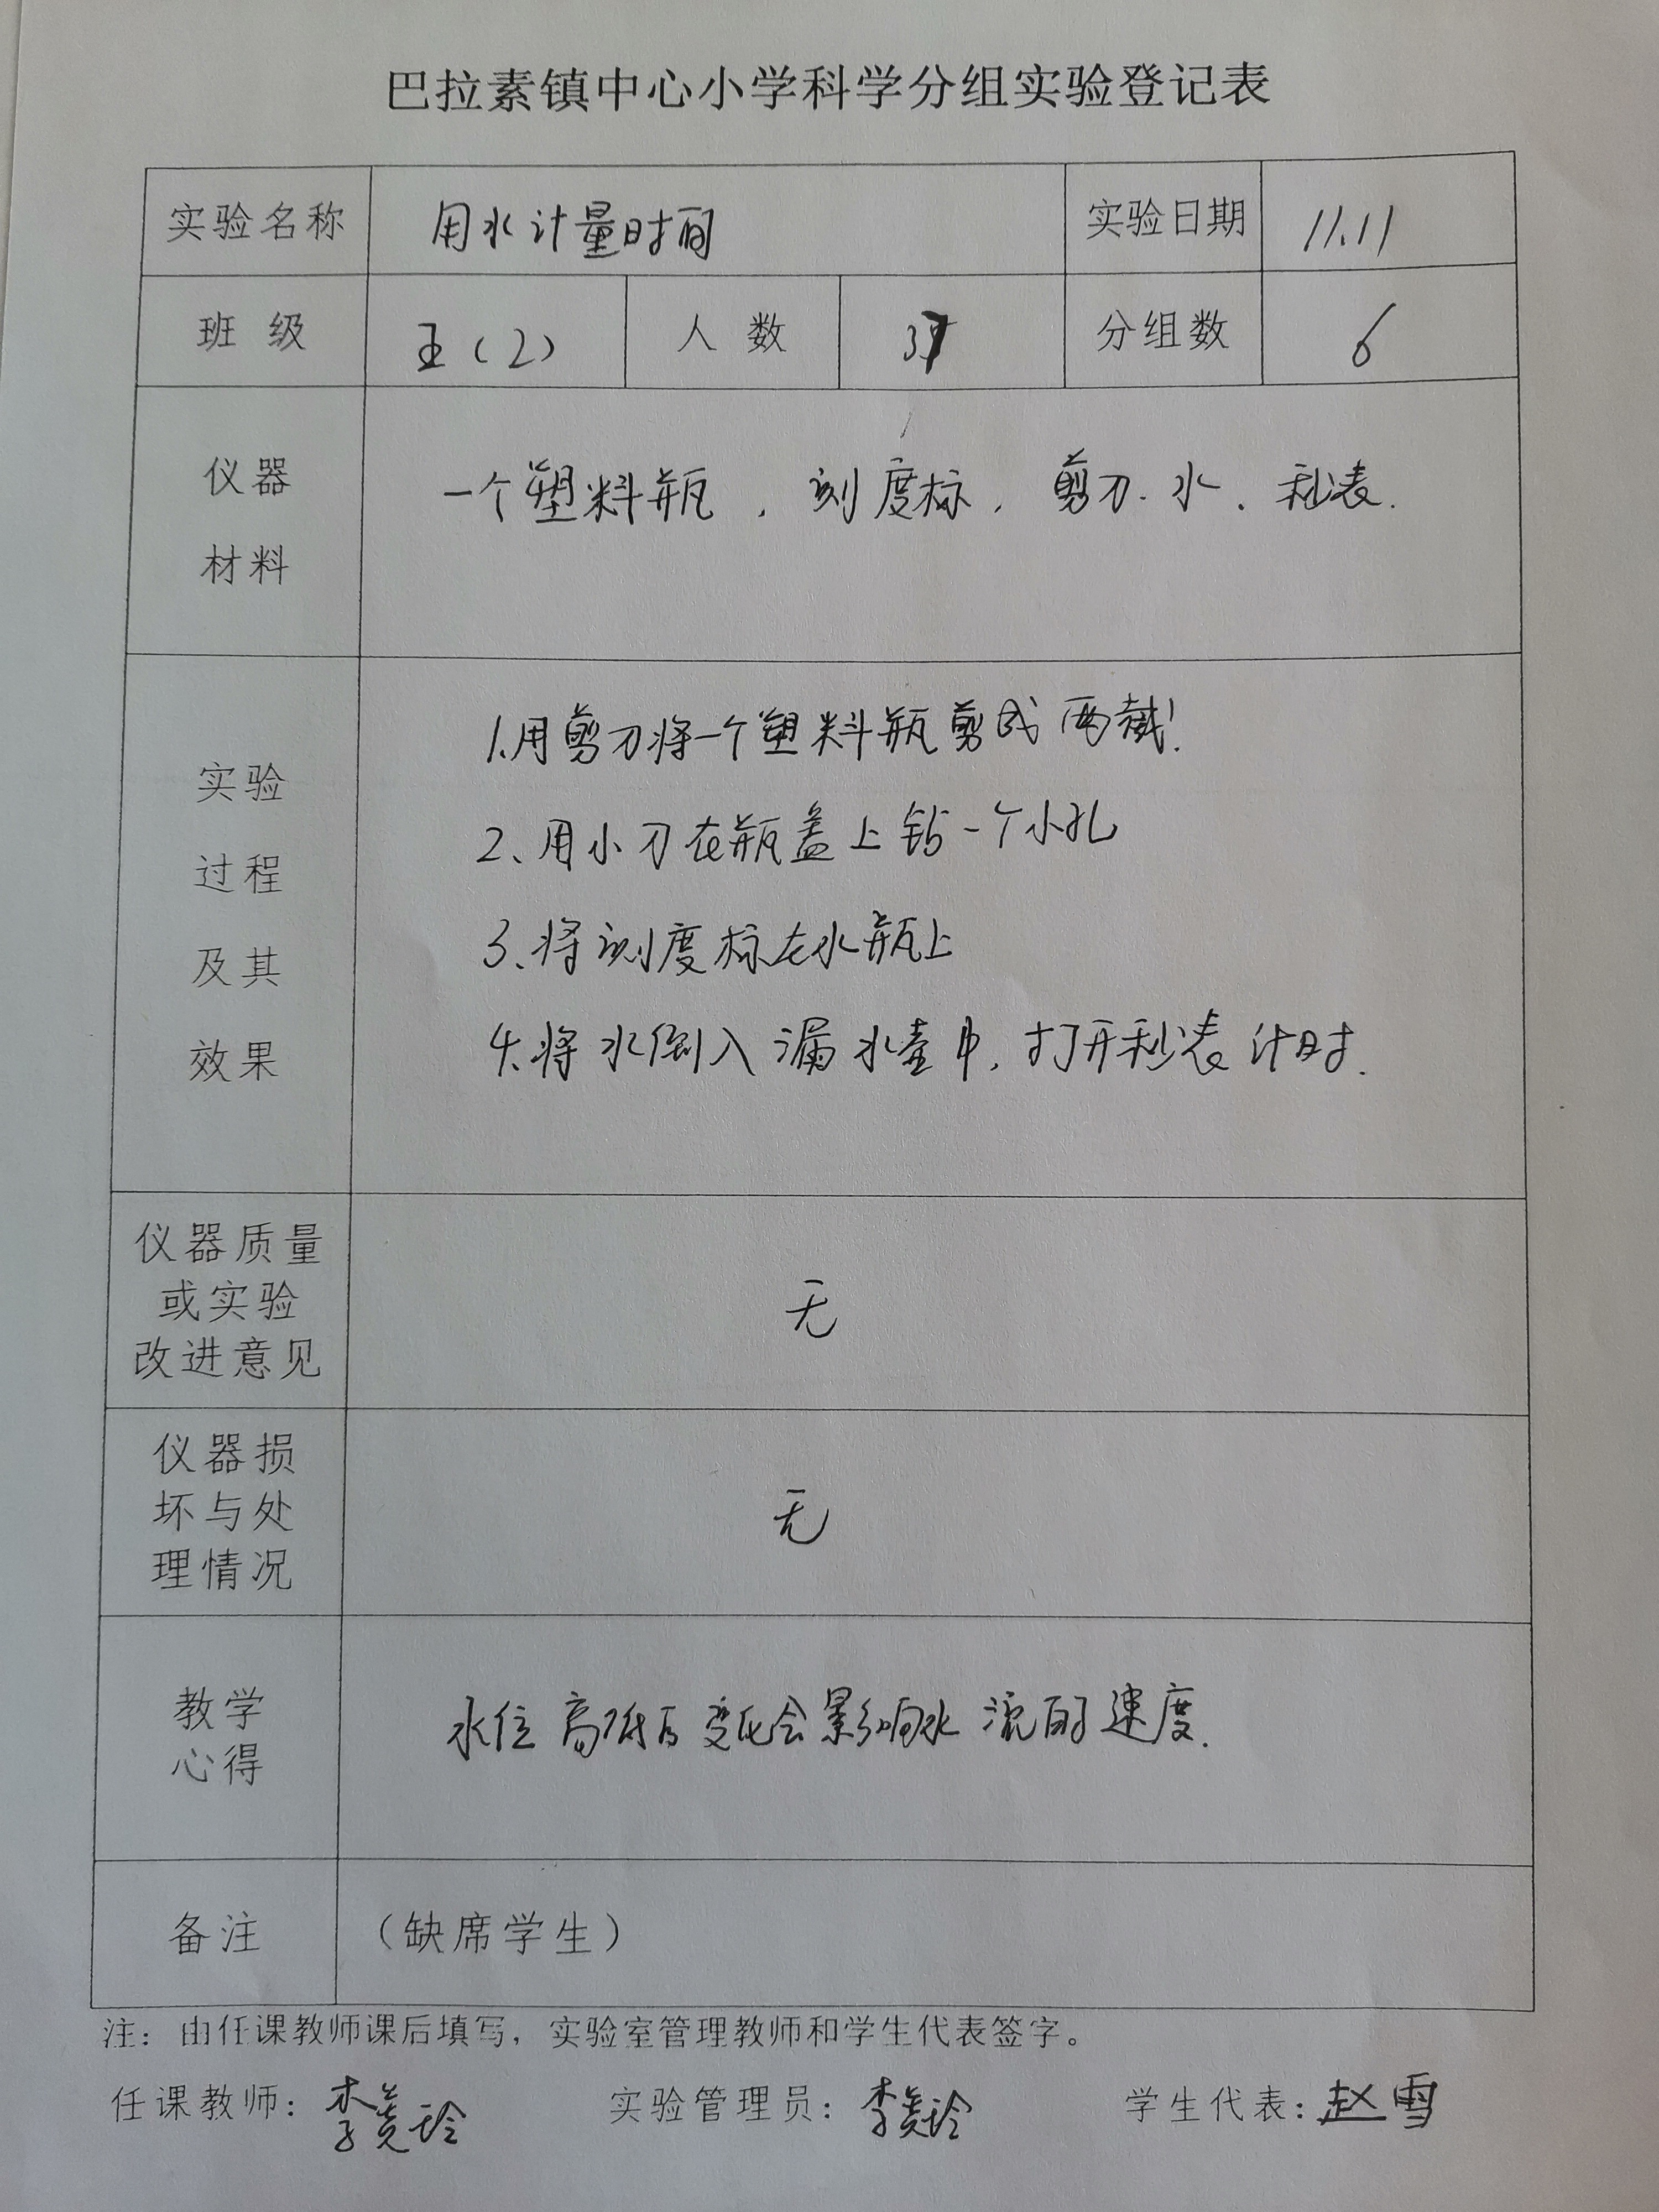 巴拉素镇中心小学科学分组实验登记表
实验名称 用水计量时间 实验日期 11.11
班 级 五（2） 人 数 37 分组数 6
仪器
材料
一个塑料瓶，刻度标，剪刀、水、秒表.
实验
过程
及其
效果
1.用剪刀将一个塑料瓶剪成两截!
2、用小刀在瓶盖上钻一个小孔
3、将刻度标在水瓶上
4.将水倒入漏水壶中,打开秒表计时.
仪器质量
或实验
改进意见
无
仪器损
坏与处
理情况
无
教学
心得
水位高低的变化会影响水流的速度.
备注 （缺席学生）
注：由任课教师课后填写，实验室管理教师和学生代表签字。
任课教师：李美玲 实验管理员：李美玲 学生代表：赵雪